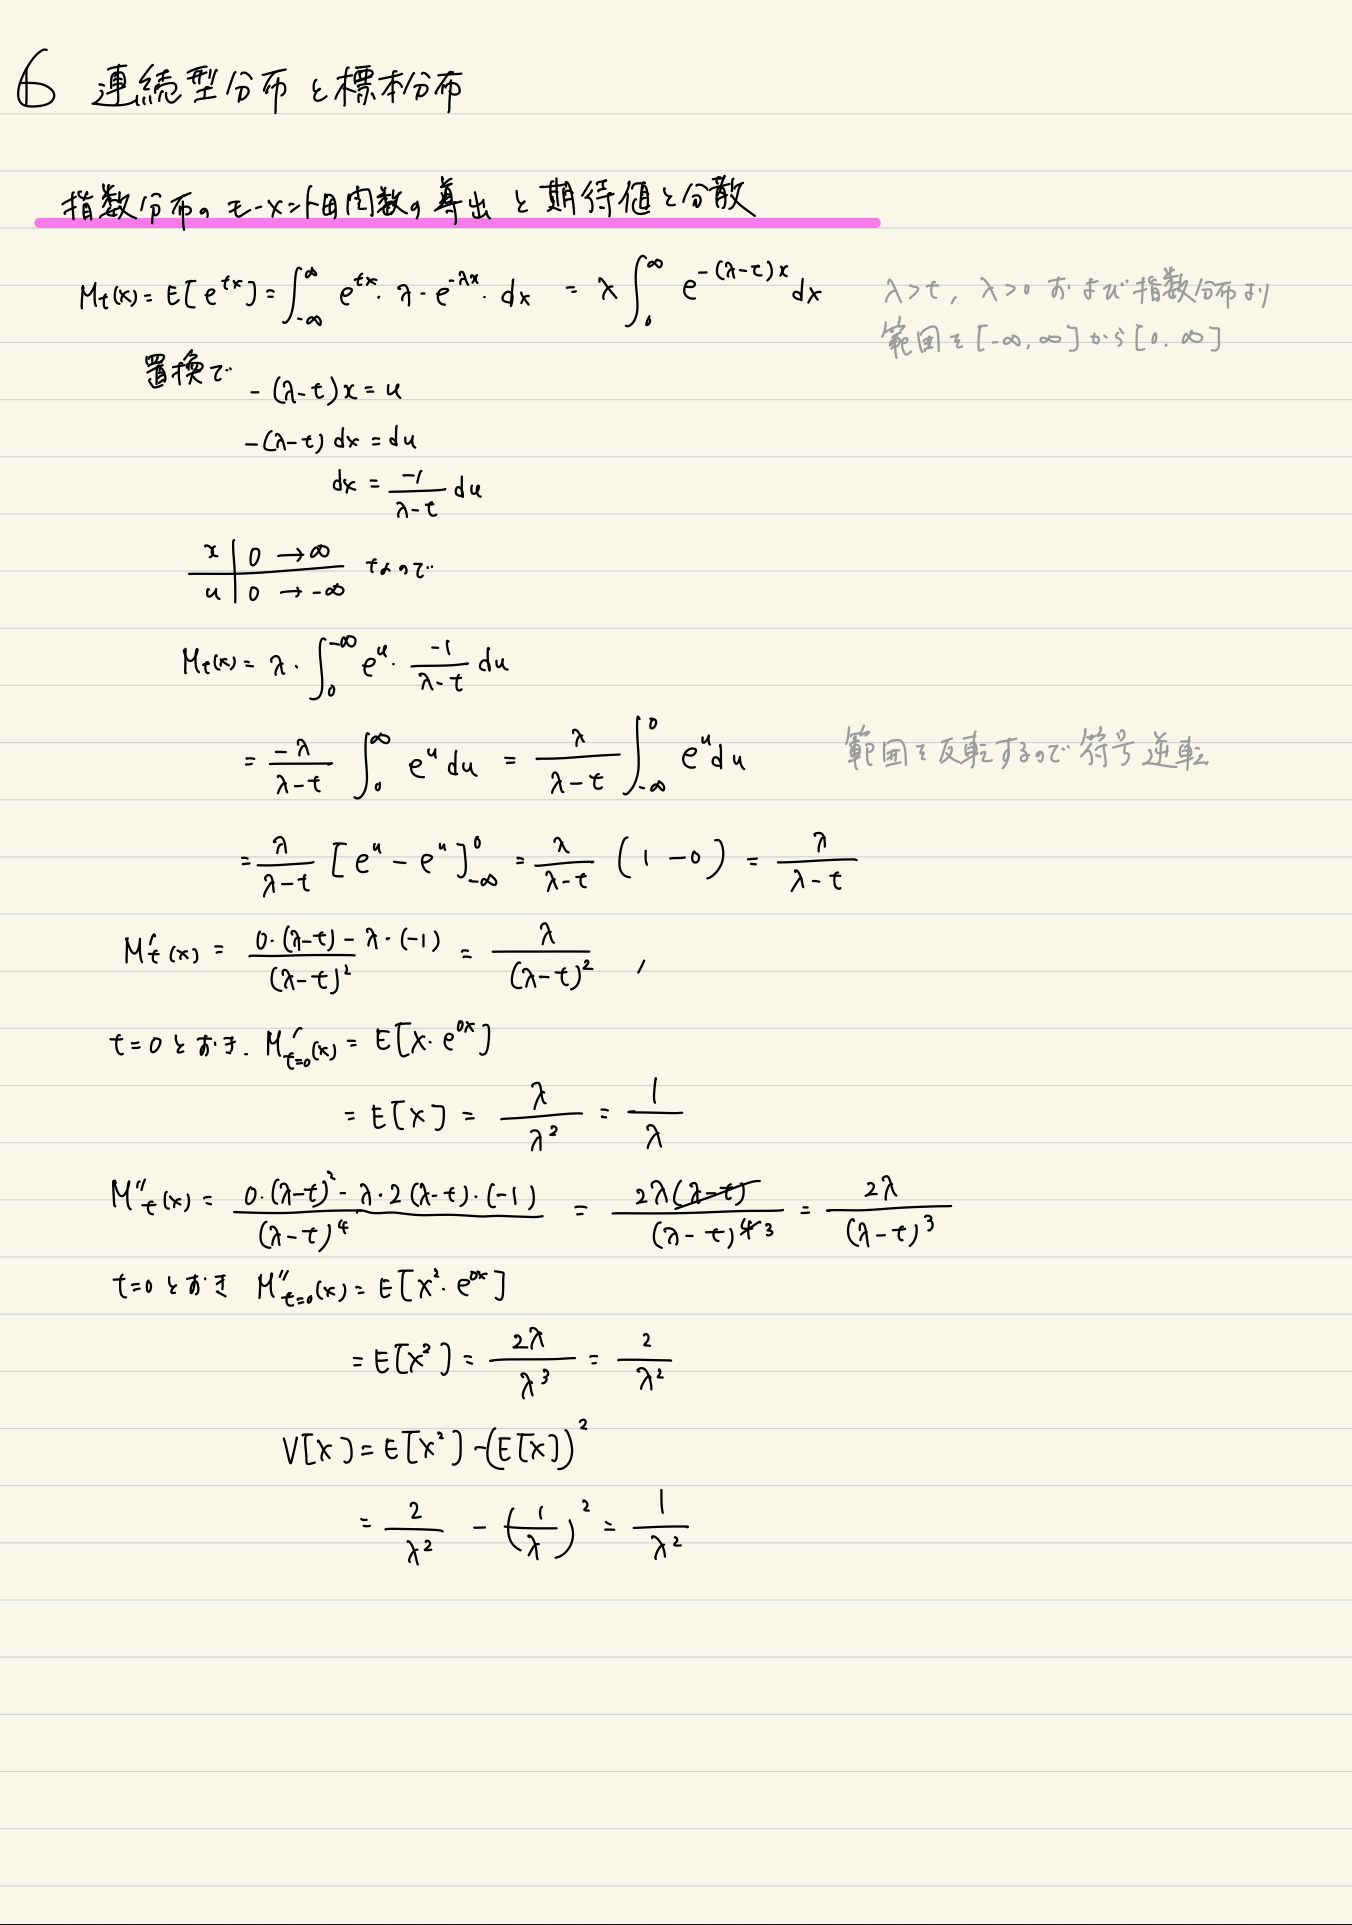 6 連続型分布と標本分布
指数分布のモーメント母関数の導出と期待値と分散
Mt(x) = E[e^{tx}] = ∫_{-∞}^{∞} e^{tx}・λ・e^{-λx}・dx = λ∫_{0}^{∞} e^{-(λ-t)x} dx
λ>t, λ>0 および指数分布より
範囲を[-∞,∞]から[0.∞]
置換で
-(λ-t)x = u
-(λ-t) dx = du
dx = \frac{-1}{λ-t} du
x | 0 → ∞
u | 0 → -∞ なので
Mt(x) = λ・∫_{0}^{-∞} e^u・\frac{-1}{λ-t} du
= \frac{-λ}{λ-t} ∫_{0}^{∞} e^u du = \frac{λ}{λ-t} ∫_{-∞}^{0} e^u du 範囲を反転するので符号逆転
= \frac{λ}{λ-t} [e^u - e^u]_{-∞}^{0} = \frac{λ}{λ-t} (1-0) = \frac{λ}{λ-t}
M't(x) = \frac{0・(λ-t) - λ・(-1)}{(λ-t)^2} = \frac{λ}{(λ-t)^2} ,
t=0とおき. M'_{t=0}(x) = E[X・e^{0x}]
= E[X] = \frac{λ}{λ^2} = \frac{1}{λ}
M''t(x) = \frac{0・(λ-t)^2 - λ・2(λ-t)・(-1)}{(λ-t)^4} = \frac{2λ(λ-t)}{(λ-t)^{4 3}} = \frac{2λ}{(λ-t)^3}
t=0とおき M''_{t=0}(x) = E[X^2・e^{0x}]
= E[X^2] = \frac{2λ}{λ^3} = \frac{2}{λ^2}
V[X] = E[X^2] - (E[X])^2
= \frac{2}{λ^2} - (\frac{1}{λ})^2 = \frac{1}{λ^2}